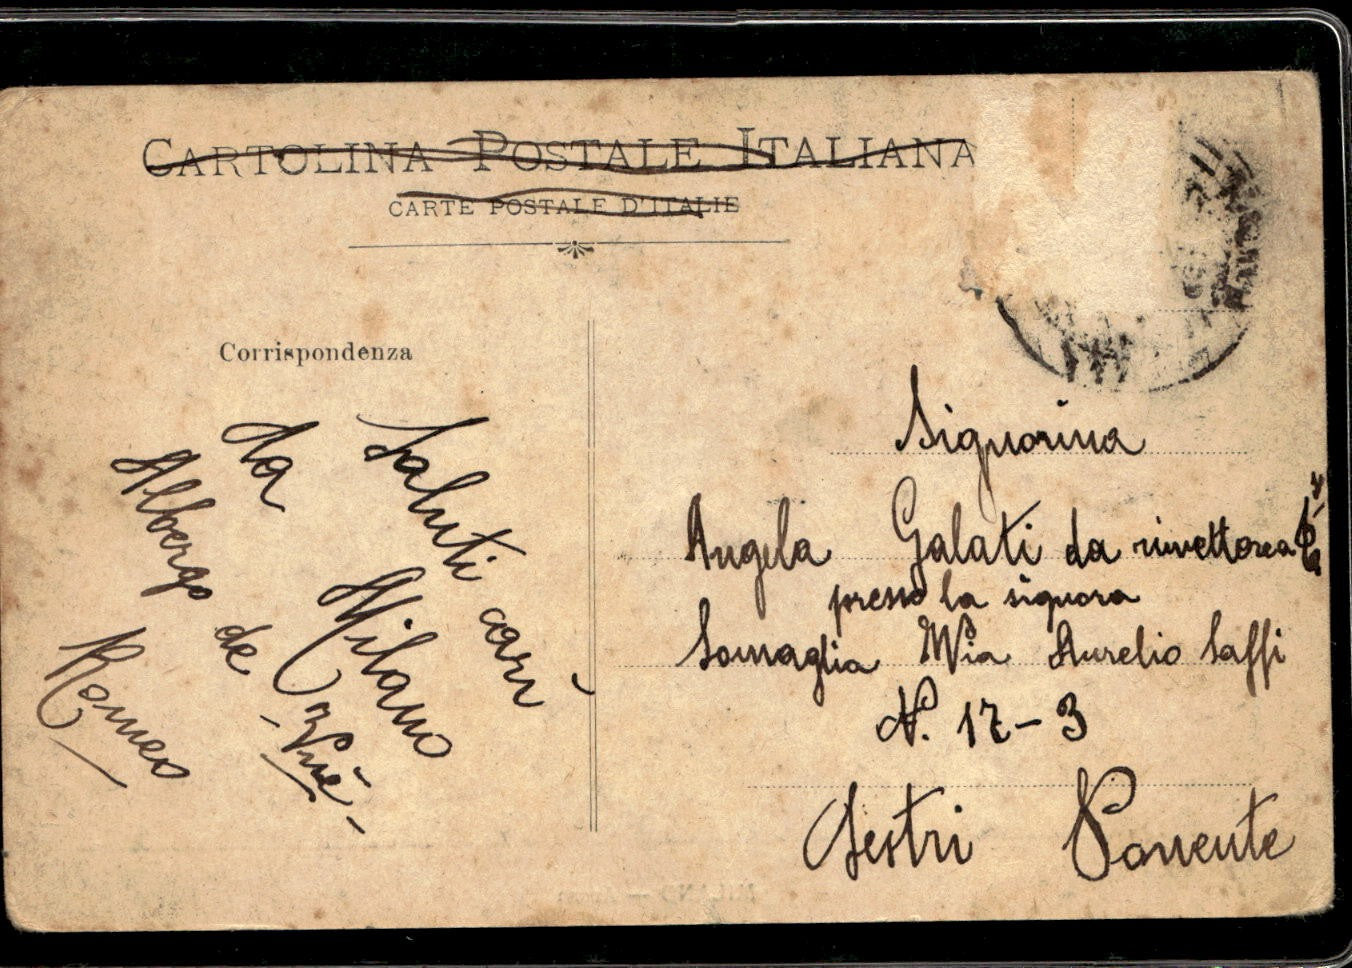 CARTOLINA POSTALE ITALIANA
CARTE POSTALE D'ITALIE
Corrispondenza
Saluti cari
da Milano
Albergo de
Romeo
Signorina
Angela Galati da
presso la signora
Somaglia Via Aurelio Saffi
N. 17-3
Sestri Ponente